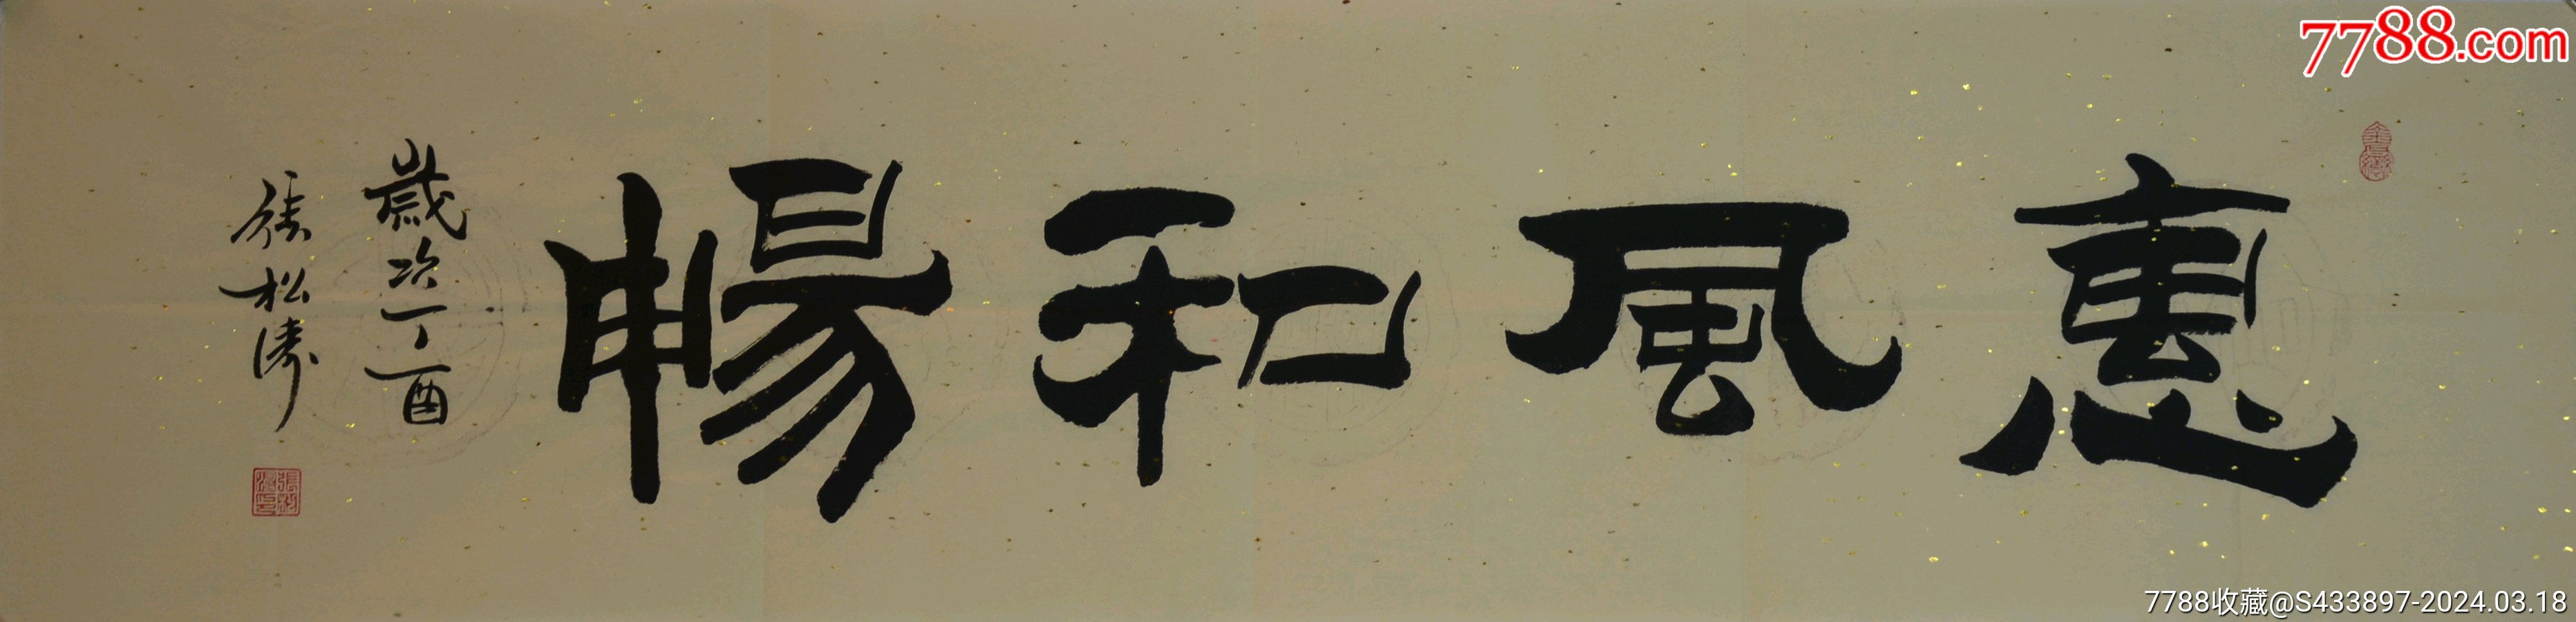 7788.com
惠風和暢
歲次丁酉
張松濤
7788收藏@S433897-2024.03.18